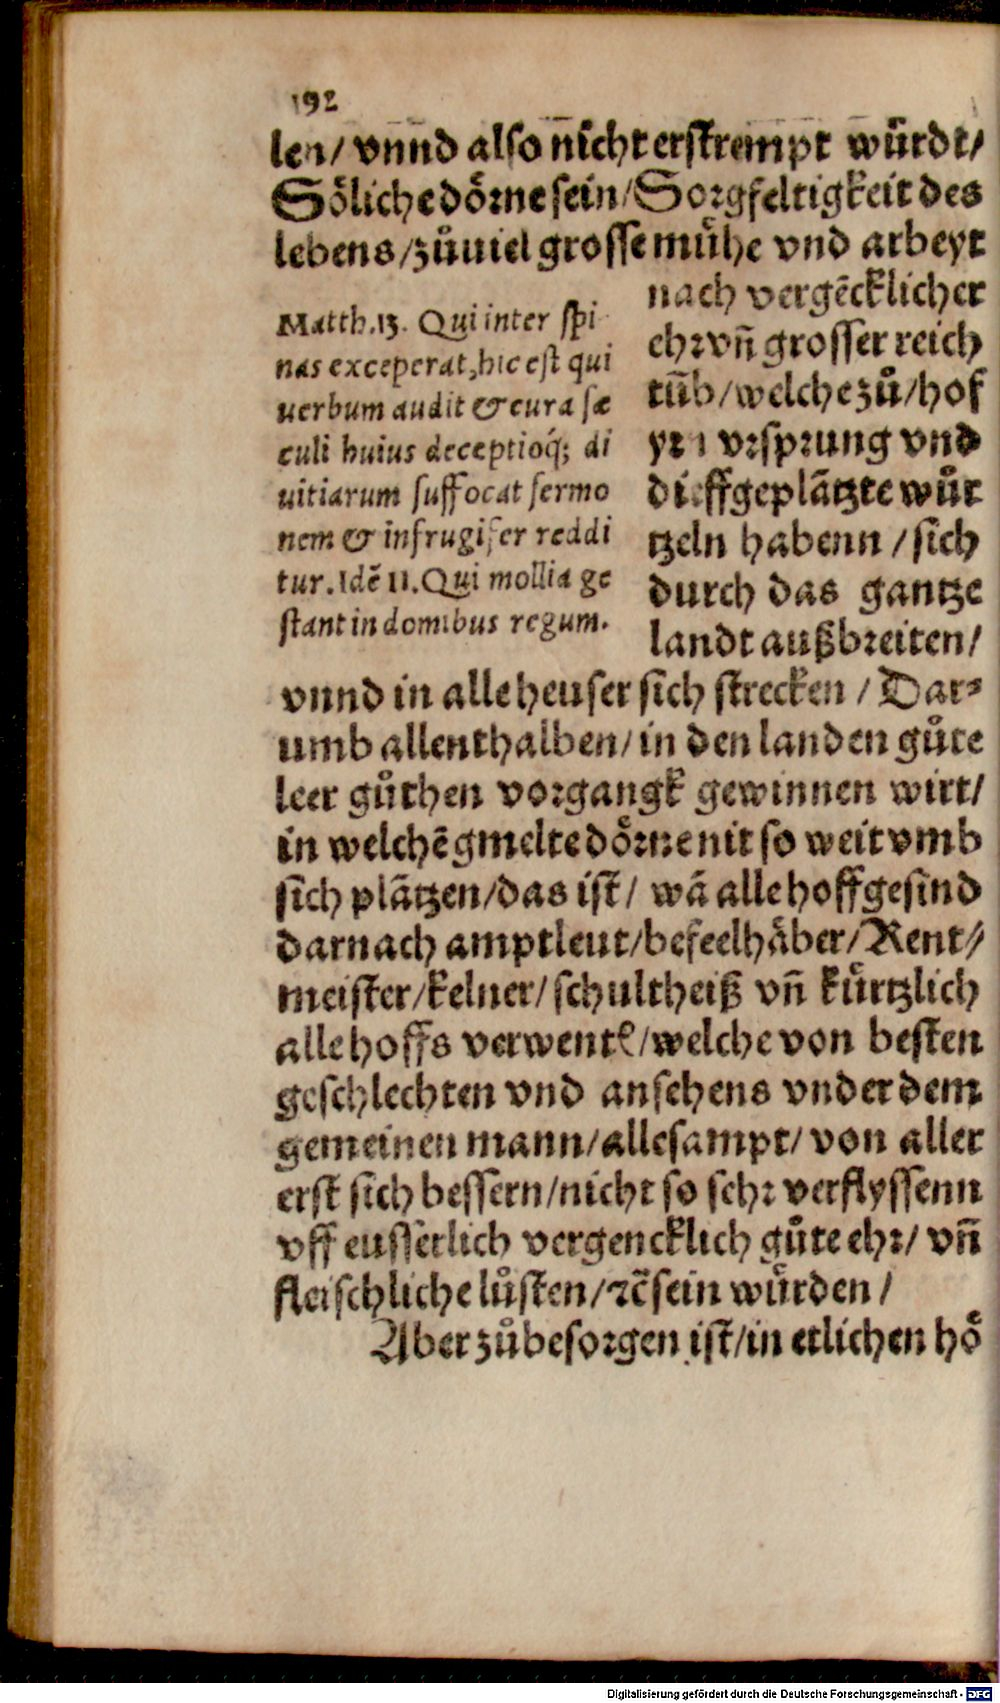 192
len/ vnnd also nicht erstrempt würdt/
Söliche dörne sein/ Sorgfeltigkeit des
lebens/ zůuiel grosse mühe vnd arbeyt
nach vergēcklicher
ehr vñ grosser reich
tūb/ welche zů/ hof
vrsprung vnd
dieffgeplātzte wůr
tzeln habenn / sich
durch das gantze
landt außbreiten/
Matth.13. Qui inter spi
nas exceperat, hic est qui
uerbum audit & cura sæ
culi huius deceptioq́; di
uitiarum suffocat sermo
nem & infrugifer reddi
tur. Idē 11. Qui mollia ge
stant in domibus regum.
vnnd in alle heuser sich strecken / Dar⸗
umb allenthalben/ in den landen gůte
leer gůthen vorgangk gewinnen wirt/
in welchē gmelte dörne nit so weit vmb
sich plātzen/ das ist/ wā alle hoffgesind
darnach amptleut/ befeelhäber/ Rent⸗
meister/ kelner/ schultheiß vñ kürtzlich
alle hoffs verwentē/ welche von besten
geschlechten vnd ansehens vnder dem
gemeinen mann/ allesampt/ von aller
erst sich bessern/ nicht so sehr verflyssenn
vff eusserlich vergencklich gůte ehr/ vñ
fleischliche lůsten/ ꝛc̄ sein würden /
Aber zůbesorgen ist/ in etlichen hö
Digitalisierung gefördert durch die Deutsche Forschungsgemeinschaft - DFG